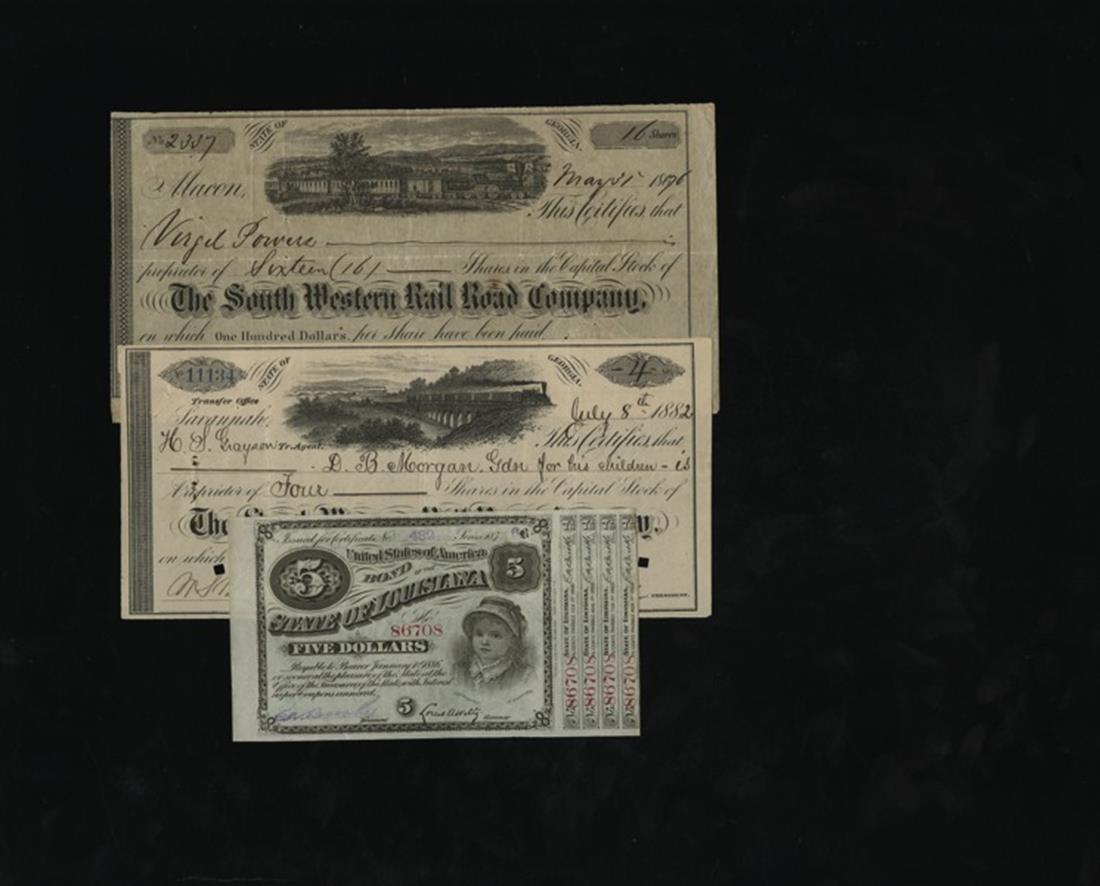 No 2337 STATE OF GEORGIA. 16 Shares
Macon, May 1st 1876
This Certifies, that
Virgil Powers is
proprietor of Sixteen (16) Shares in the Capital Stock of
The South Western Rail Road Company,
on which One Hundred Dollars, per share have been paid
No 11134 STATE OF GEORGIA. 4
Transfer Office
Savannah, July 8th 1882
H. S. Grayson Tr. Agent. This Certifies, that
D. B. Morgan Gdn for his children is
Proprietor of Four Shares in the Capital Stock of
The
on which
PRESIDENT.
Issued for fortificate No. 489 Series 187
United States of America
5 BOND of the 5
STATE OF LOUISIANA
No.
86708
FIVE DOLLARS
Payable to Bearer January 1st 1886
or sooner at the pleasure of the State at the
Office of the Treasurer of the State, with Interest
as per coupons annexed.
5
STATE OF LOUISIANA, No 86708
STATE OF LOUISIANA, No 86708
STATE OF LOUISIANA, No 86708
STATE OF LOUISIANA, No 86708